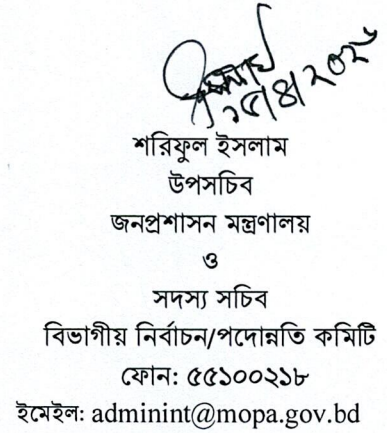 ১৫/৪/২০২৬
শরিফুল ইসলাম
উপসচিব
জনপ্রশাসন মন্ত্রণালয়
ও
সদস্য সচিব
বিভাগীয় নির্বাচন/পদোন্নতি কমিটি
ফোন: ৫৫১০০২১৮
ইমেইল: adminint@mopa.gov.bd